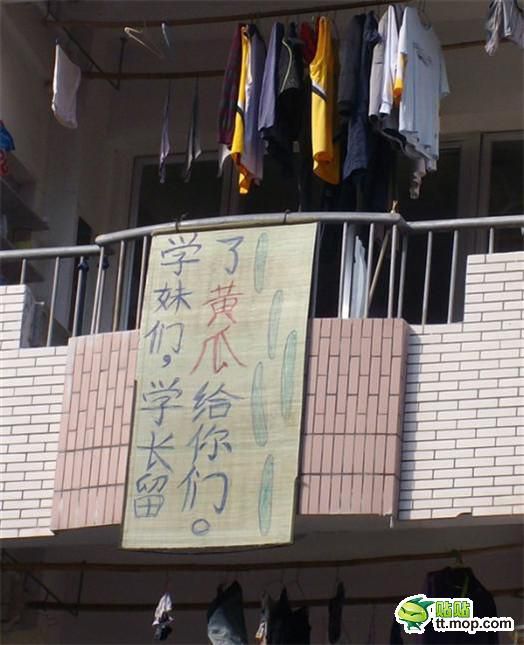 学妹们，学长留
了黄瓜给你们。
贴贴
tt.mop.com